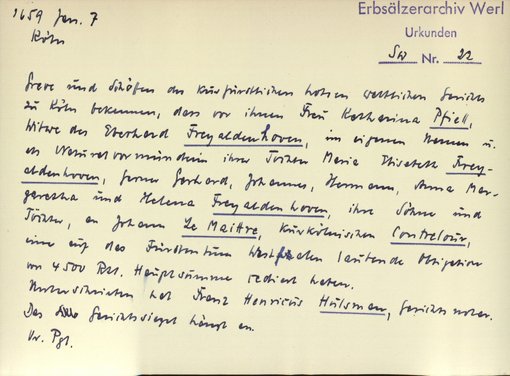 1659 Jan. 7
Köln
Erbsälzerarchiv Werl
Urkunden
Sw Nr. 22
Greve und Schöffen des kurfürstlichen hohen weltlichen Gerichts
zu Köln bekennen, dass vor ihnen Frau Katharina Pfiell,
Witwe des Eberhard Freyaldenhoven, im eigenen Namen u.
als Naturalvormünderin ihrer Tochter Maria Elisabeth Frey-
aldenhoven, ferner Gerhard, Johannes, Hermann, Anna Mar-
garetha und Helena Freyaldenhoven, ihre Söhne und
Töchter, an Johann Le Maittre, kurkölnischen Contrelour,
eine auf das Fürstentum Westfalen lautende Obligation
von 4500 Rt. Hauptsumme cediert haben.
Unterschrieben hat Franz Henricus Hülsman, Gerichtsnotar.
Das Gerichtssiegel hängt an.
Or. Pgt.